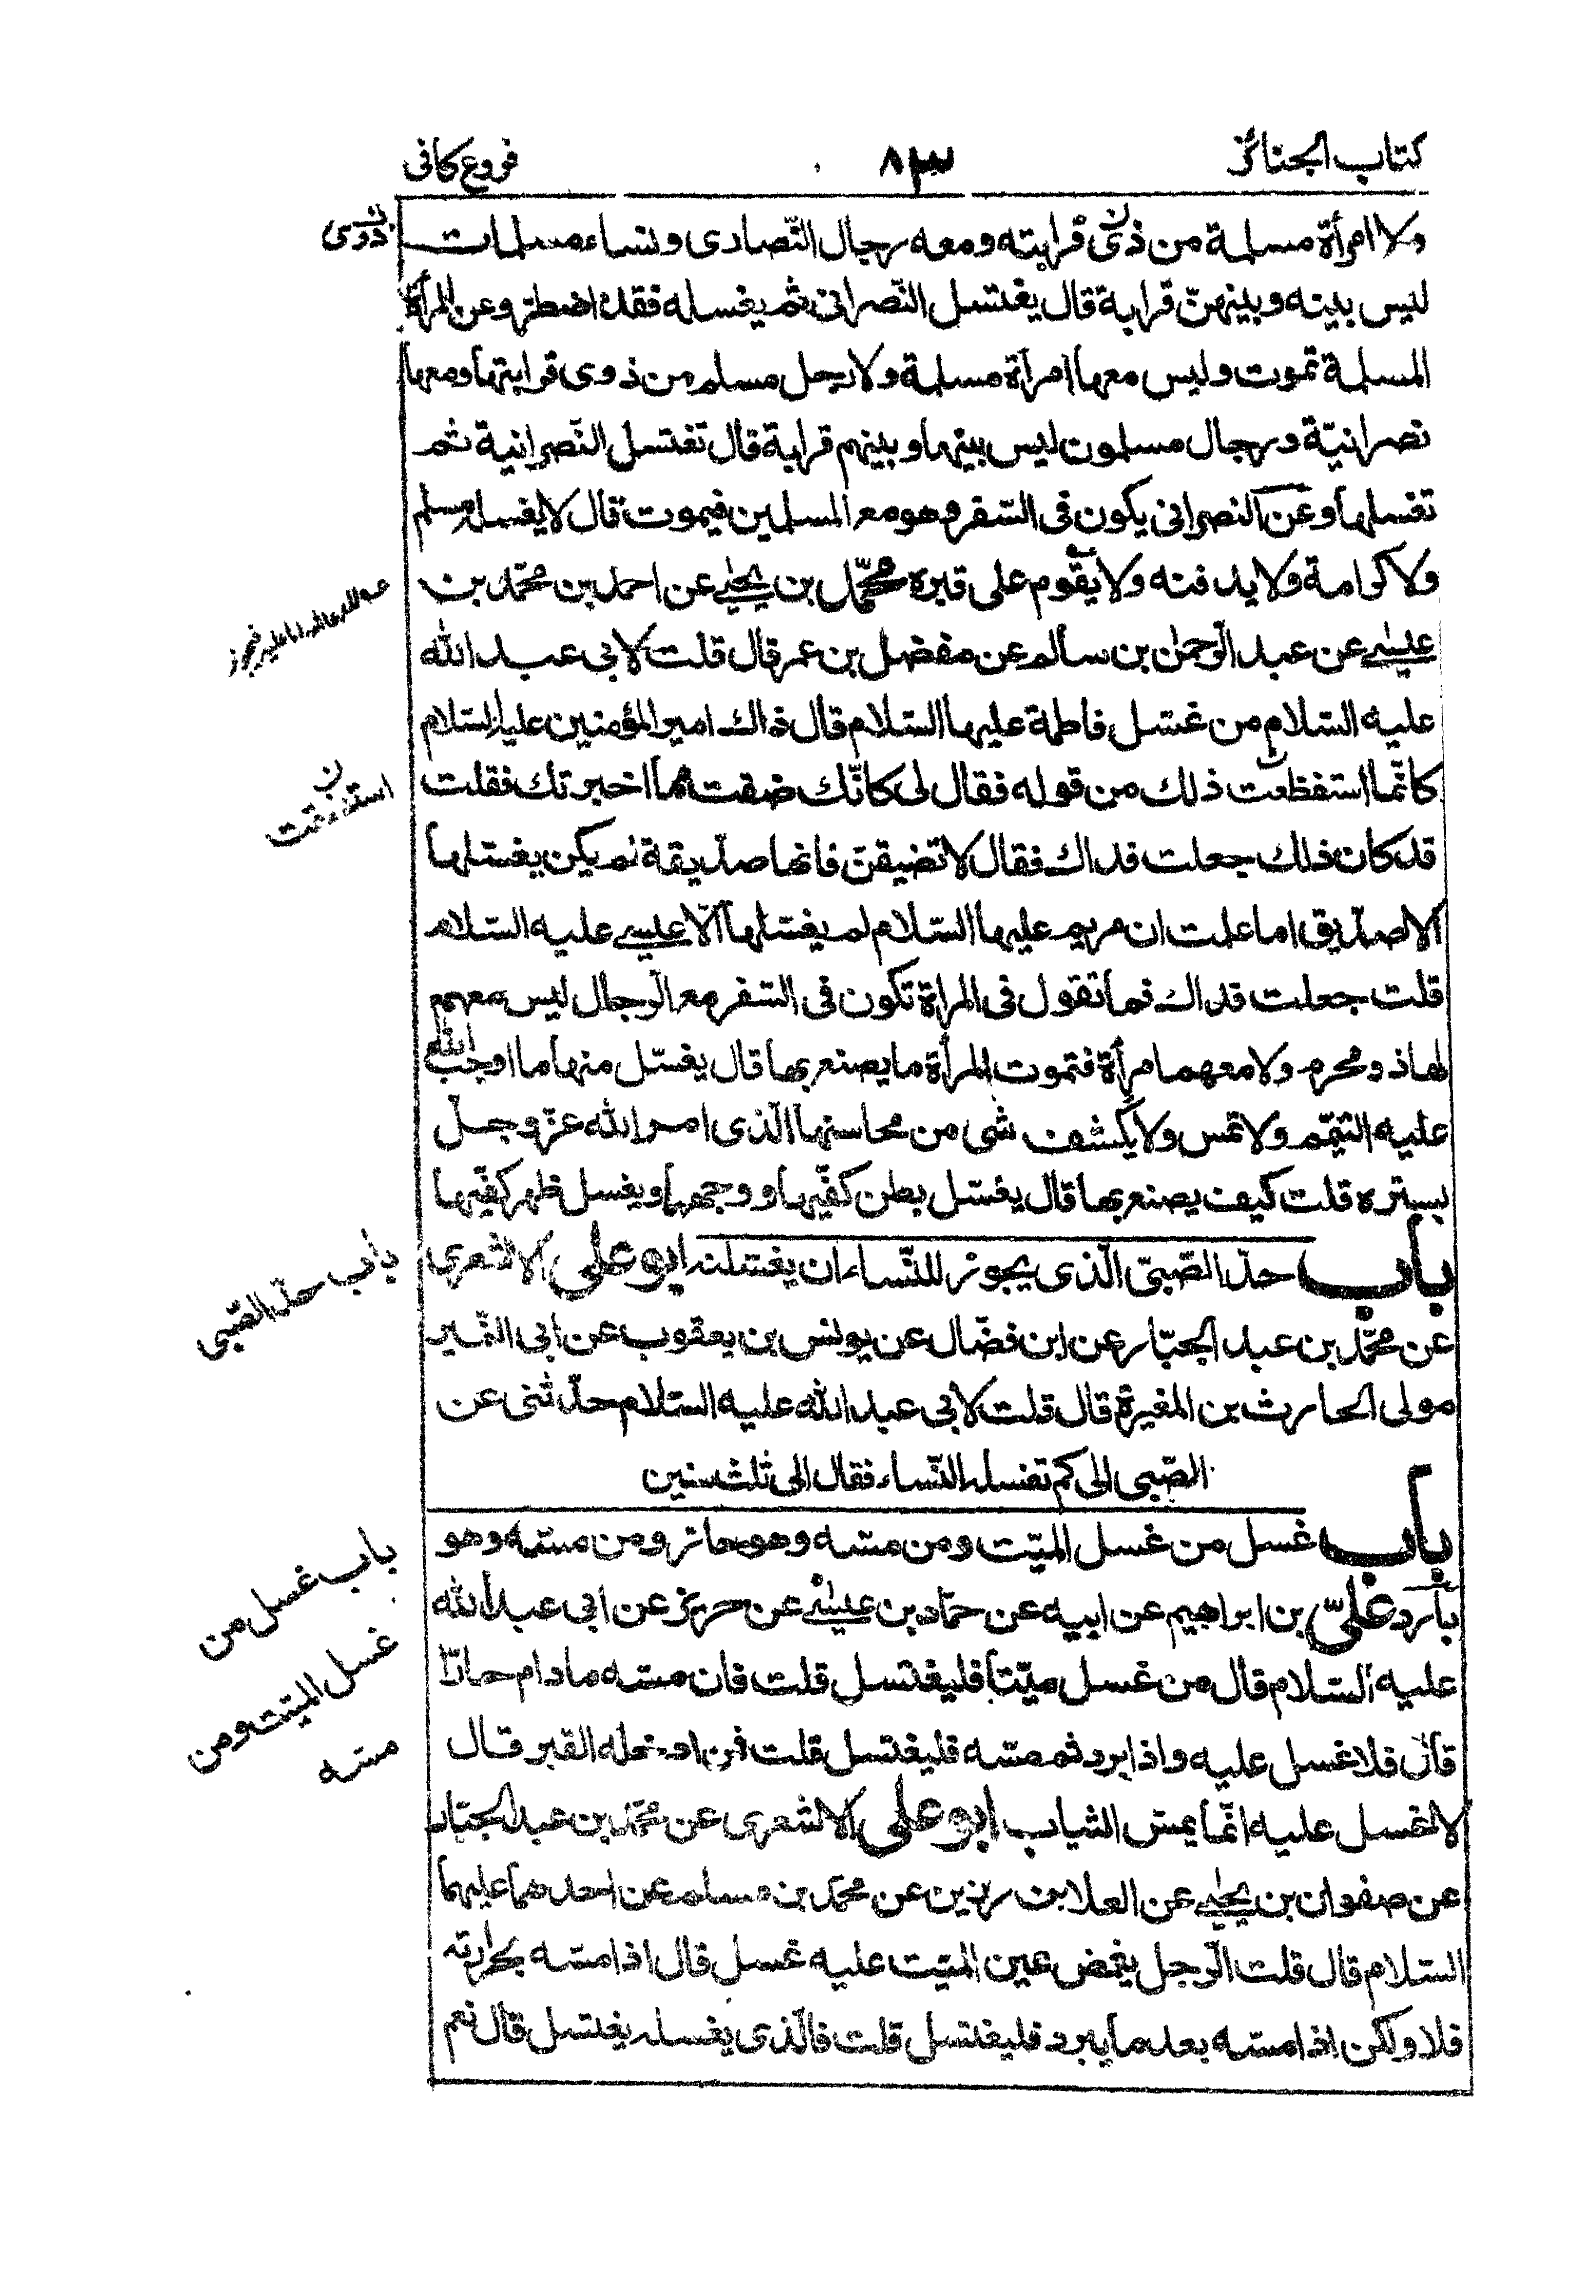 كتاب الجنائز
٨٣
فروع كافى
ولا امرأة مسلمة من ذى قرابته ومعه رجال النّصارى ونساء مسلمات
ذوى
ليس بينه وبينهنّ قرابة قال يغتسل النّصرانى ثم يغسله فقد اضطرّ وعن المرأة
المسلمة تموت وليس معها امرأة مسلمة ولا رجل مسلم من ذوى قرابتها ومعها
نصرانيّة ورجال مسلمون ليس بينها وبينهم قرابة قال تغتسل النّصرانية ثم
تغسلها وعن النصرانى يكون فى السّفر وهو مع المسلمين فيموت قال لا يغسله مسلم
ولا كرامة ولا يدفنه ولا يقوم على قبره محمّد بن يحيى عن احمد بن محمّد بن
عيسى عن عبد الرّحمن بن سالم عن مفضل بن عمر قال قلت لابى عبد الله
عليه السّلام من غسّل فاطمة عليها السّلام قال ذاك امير المؤمنين عليه السّلام
كانّما استفظعت ذلك من قوله فقال لى كانّك ضقت مما اخبرتك فقلت
قد كان ذلك جعلت فداك فقال لا تضيقن فانها صدّيقة لم يكن يغسّلها
الا صدّيق اما علمت ان مريم عليها السّلام لم يغسّلها الّا عيسى عليه السّلام
قلت جعلت فداك فما تقول فى المرأة تكون فى السّفر مع الرّجال ليس معهم
لها ذو محرم ولا معهم امرأة فتموت المرأة ما يصنع بها قال يغسّل منها ما اوجب الله
عليه التيمّم ولا تمس ولا يكشف شى من محاسنها الّذى امر الله عزّ وجلّ
بستره قلت كيف يصنع بها قال يغسّل بطن كفّيها ووجهها ويغسل ظهر كفّيها
باب حدّ الصّبىّ الّذى يجوز للنّساء ان يغسّلنه ابو على الاشعرى
باب حدّ الصّبى
عن محمّد بن عبد الجبّار عن ابن فضّال عن يونس بن يعقوب عن ابى النّمير
مولى الحارث بن المغيرة قال قلت لابى عبد الله عليه السّلام حدّثنى عن
الصّبى الى كم تغسله النّساء فقال الى ثلث سنين
باب غسل من غسل الميّت ومن مسّه وهو حارّ ومن مسّه وهو
باب غسل من
غسل الميّت ومن
مسّه
بارد علىّ بن ابراهيم عن ابيه عن حمّاد بن عيسى عن حريز عن ابى عبد الله
عليه السّلام قال من غسل ميّتا فليغتسل قلت فان مسّه مادام حارّا
قال فلا غسل عليه واذا برد ثم مسّه فليغتسل قلت فمن ادخله القبر قال
لا غسل عليه انّما يمسّ الثياب ابو على الاشعرى عن محمّد بن عبد الجبّار
عن صفوان بن يحيى عن العلا بن رزين عن محمّد بن مسلم عن احدهما عليهما
السّلام قال قلت الرّجل يغمض عين الميّت عليه غسل قال اذا مسّه بحرارته
فلا ولكن اذا مسّه بعد ما يبرد فليغتسل قلت فالّذى يغسله يغتسل قال نعم